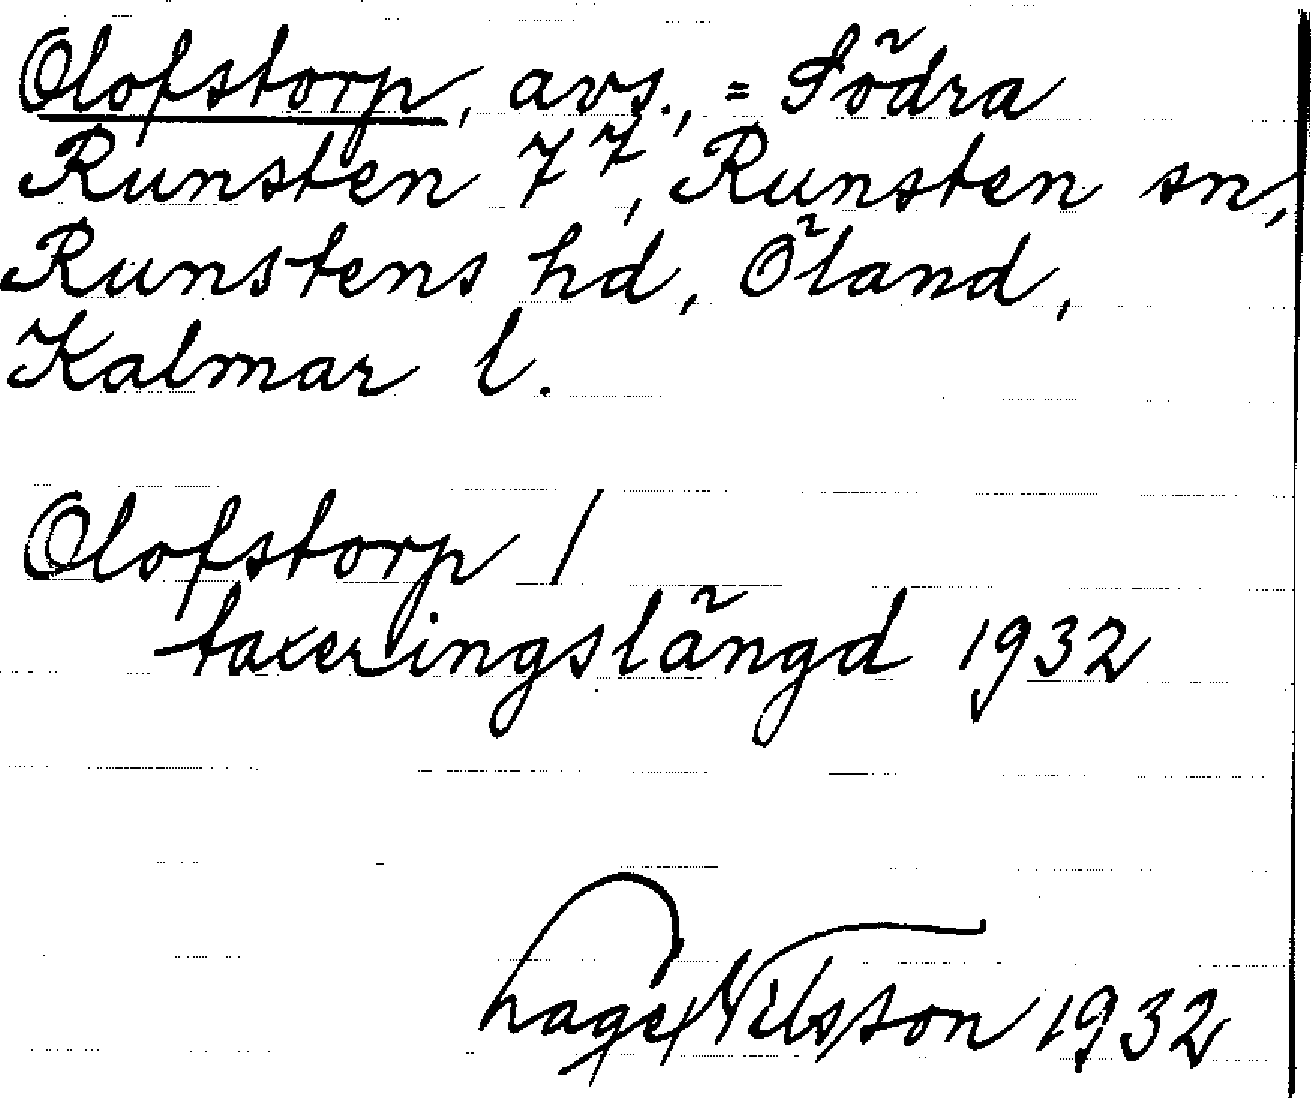 Olofstorp, avs., = Södra
Runsten 7⁷, Runsten sn,
Runstens hd, Öland,
Kalmar l.
Olofstorp /
taxeringslängd 1932
Nilsson 1932